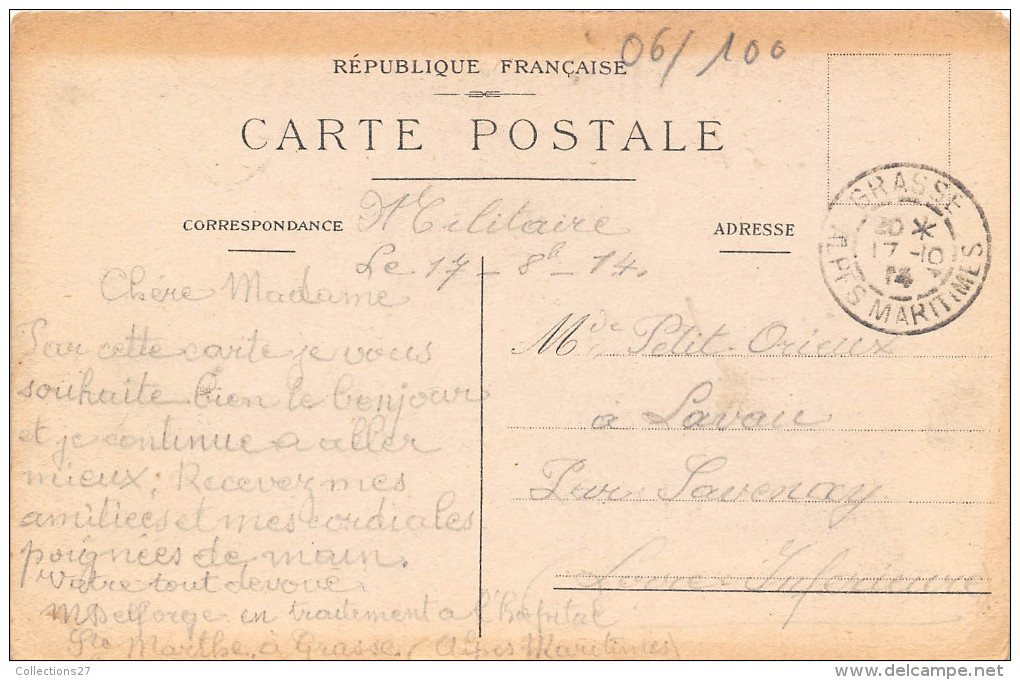 06/100
RÉPUBLIQUE FRANÇAISE
CARTE POSTALE
CORRESPONDANCE
Militaire
ADRESSE
GRASSE
20 *
17 -10
14
ALPES MARITIMES
Le 17 - 8b - 14.
Chère Madame
Par cette carte je vous
souhaite bien le bonjour
et je continue a aller
mieux; Recevez mes
amitiées et mes cordiales
poignées de main.
Votre tout devoué
M Delforge en traitement a l'hôpital
Ste Marthe, à Grasse, (Alpes Maritimes)
Mde Petit-Orieux
à Lavau
Par Savenay
(Loire-Inférieure
Collections27
delcampe.net